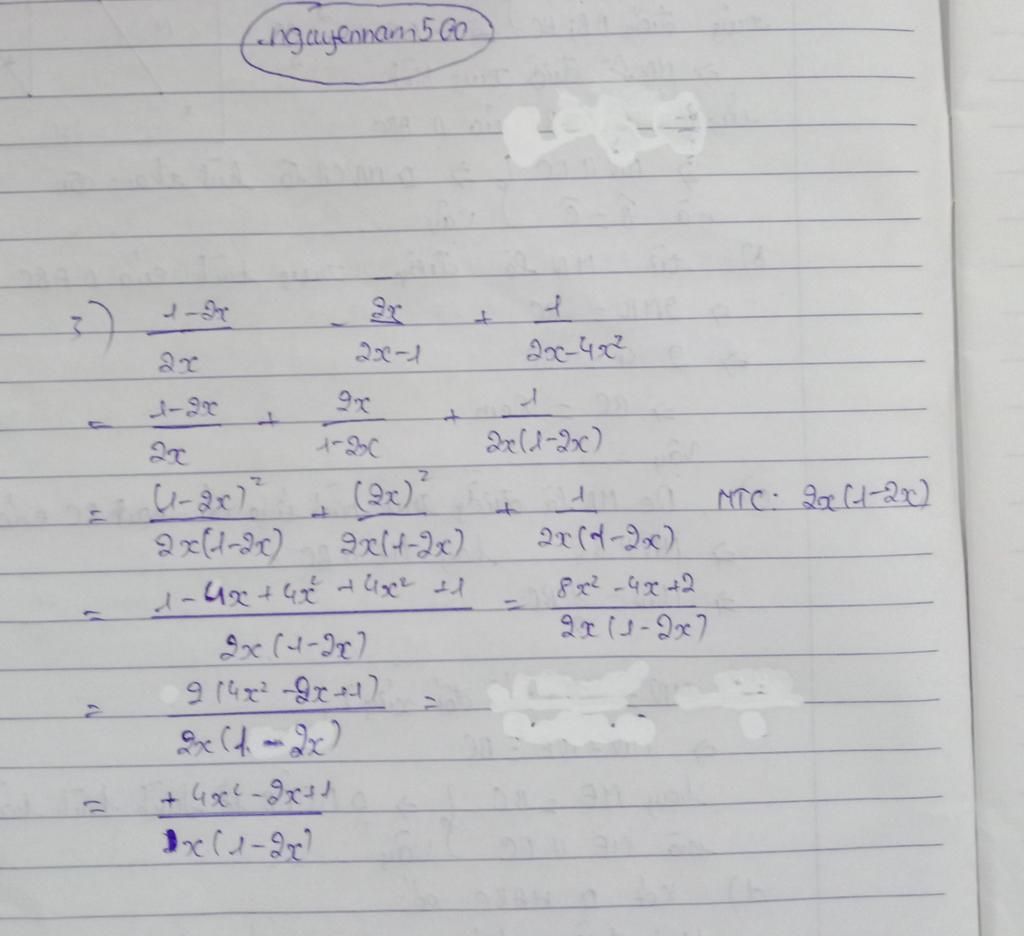 .nguyennam560
3) (1-2x)/(2x) - (2x)/(2x-1) + 1/(2x-4x²)
= (1-2x)/(2x) + (2x)/(1-2x) + 1/(2x(1-2x))
= (1-2x)²/(2x(1-2x)) + (2x)²/(2x(1-2x)) + 1/(2x(1-2x)) MTC: 2x(1-2x)
= (1-4x+4x²+4x²+1)/(2x(1-2x)) = (8x²-4x+2)/(2x(1-2x))
= 2(4x²-2x+1)/(2x(1-2x)) =
= (+4x²-2x+1)/(x(1-2x))